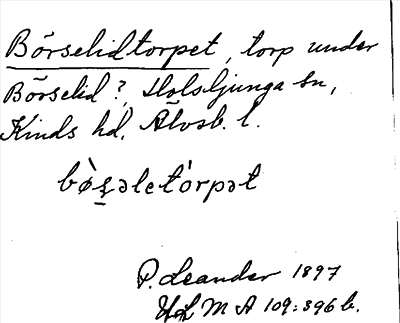 Börselidtorpet, torp under
Börselid?, Holsljunga sn,
Kinds hd, Älvsb. l.
bø̀ʂəletórpət
P. Leander 1897
ULMA 109:396 b.